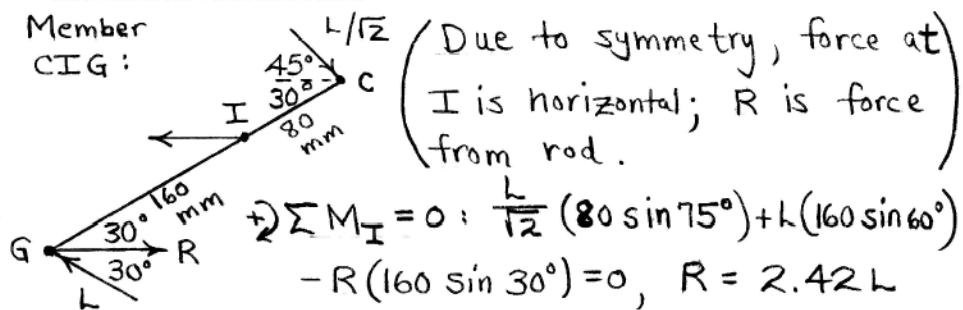 Member
CIG :
L/√2
45°
30°
C
I
80
mm
160
mm
G
30°
R
30°
L
(Due to symmetry, force at
I is horizontal; R is force
from rod.)
+↻ΣM_I = 0 : L/√2 (80 sin 75°) + L(160 sin 60°)
− R(160 sin 30°) = 0, R = 2.42 L